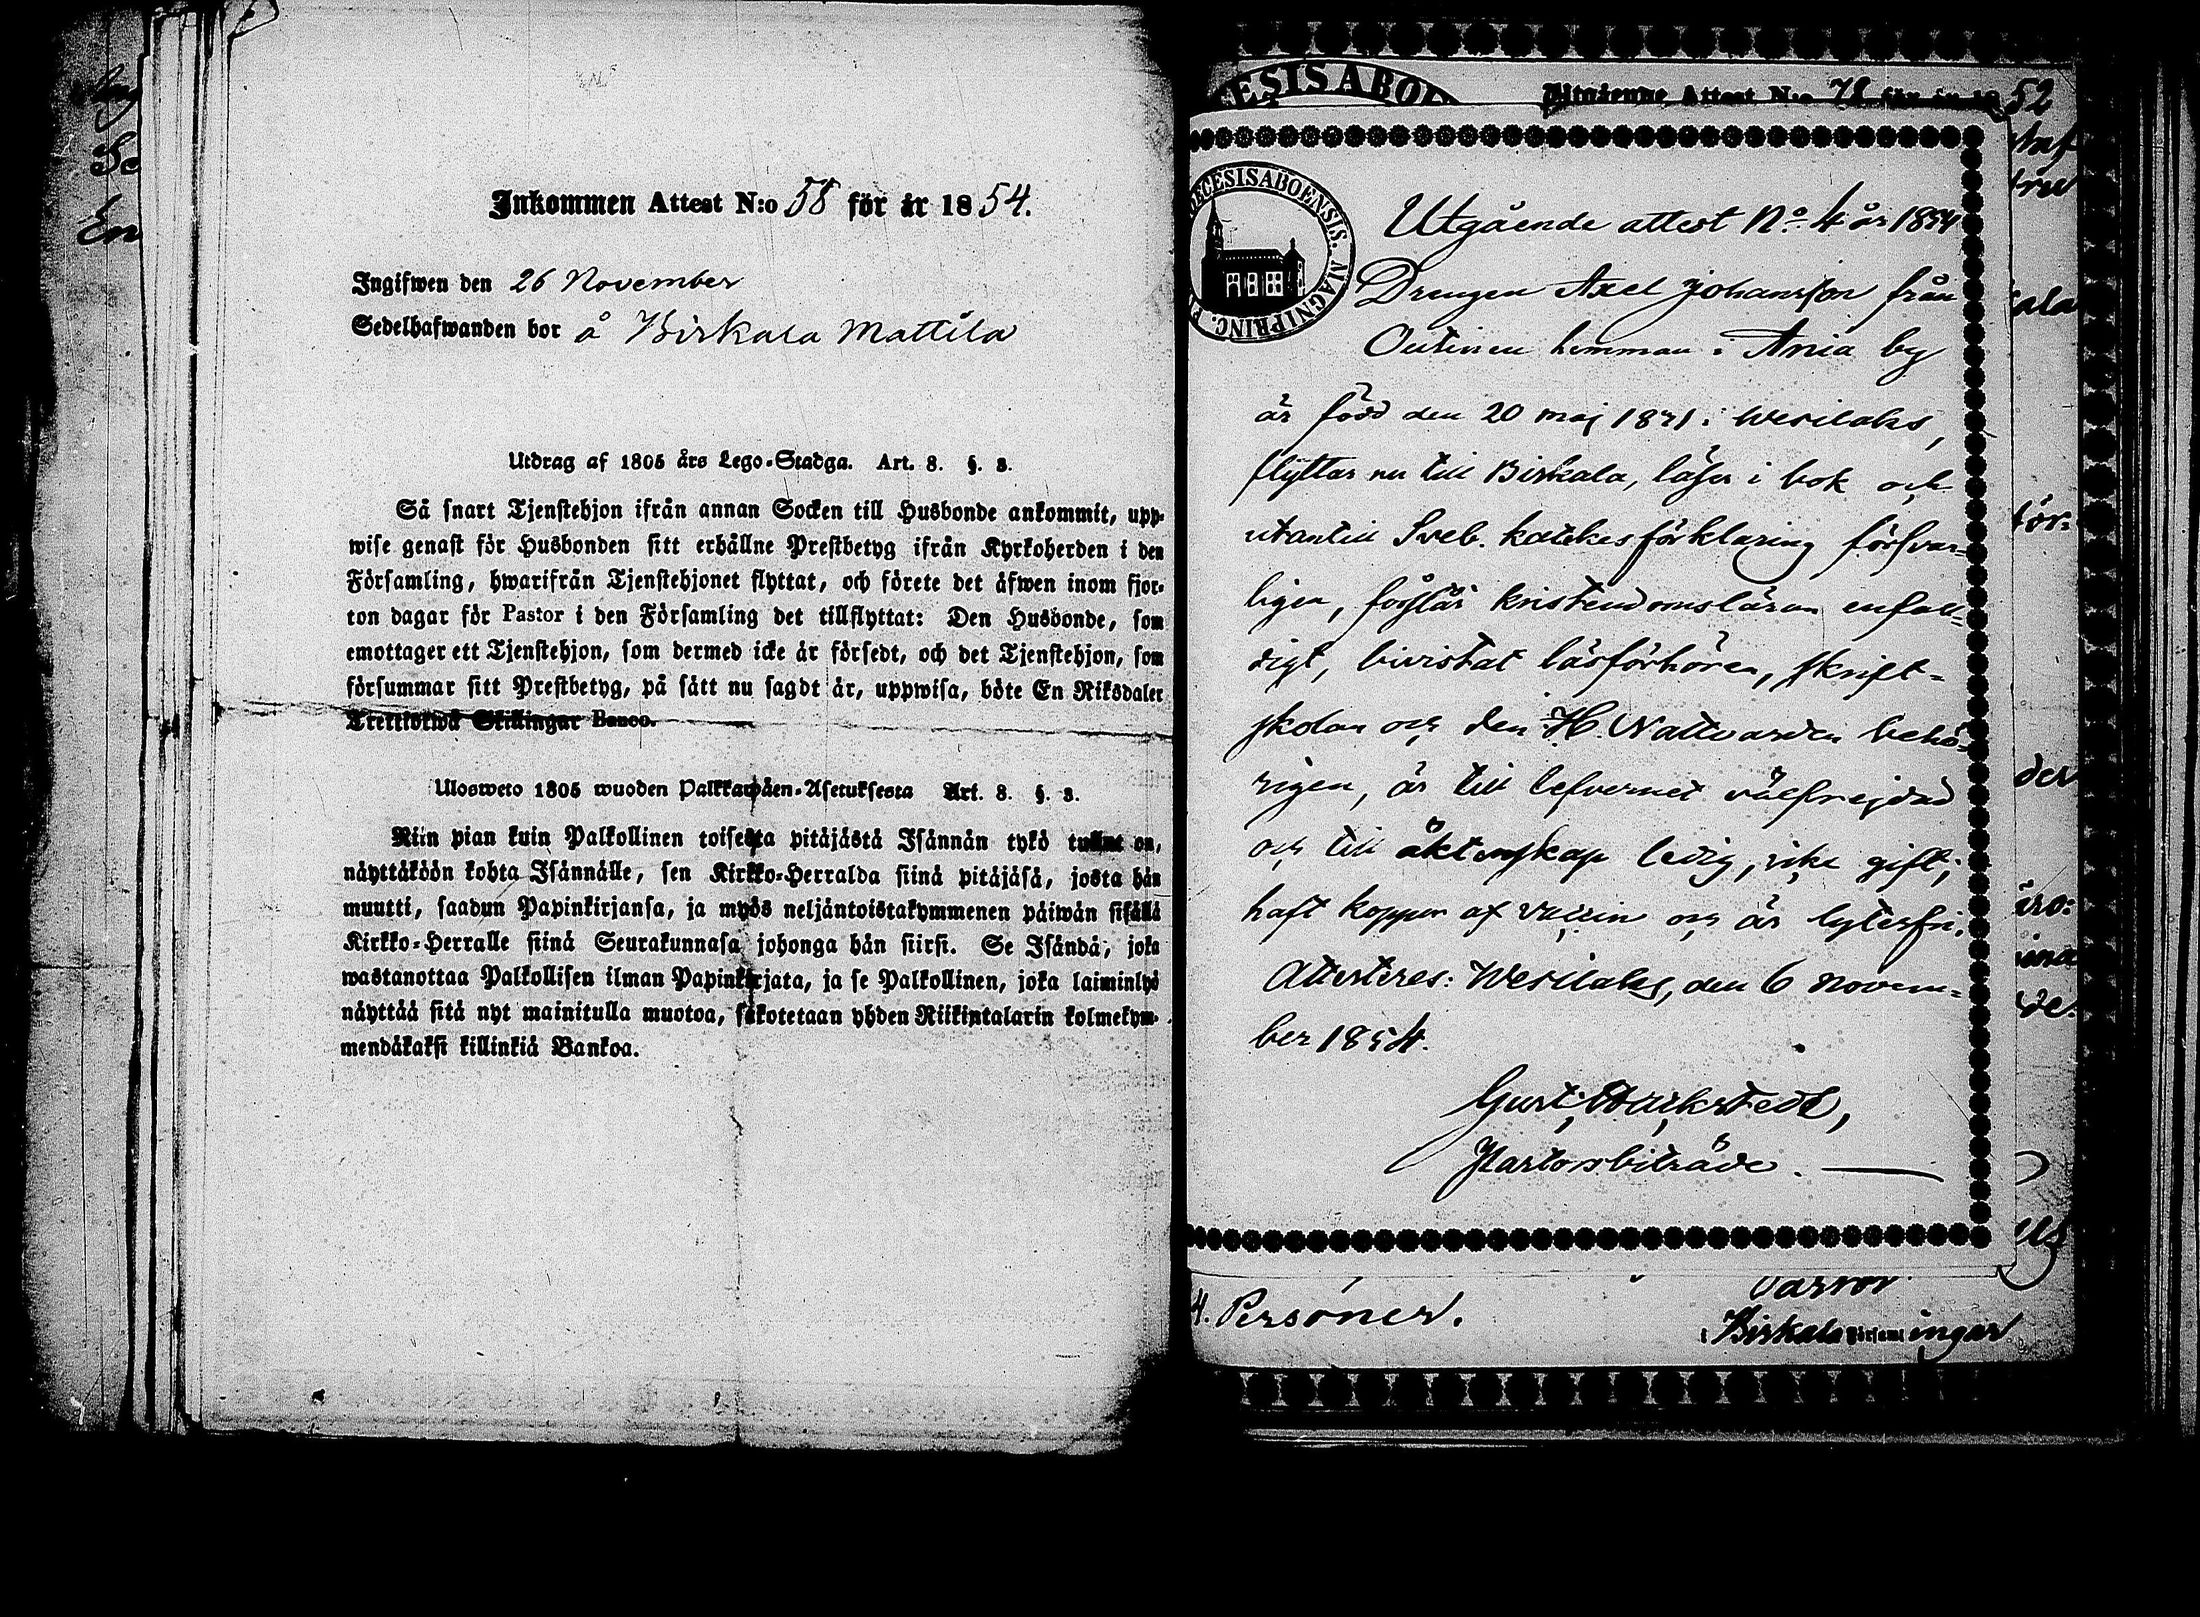 Inkommen Attest N:o 58 för år 1854.
Ingifwen den 26 November
Sedelhafwanden bor å Birkala Mattila
Utdrag af 1805 års Lego-Stadga. Art. 8. §. 3.
Så snart Tjenstehjon ifrån annan Socken till Husbonde ankommit, upp-
wise genast för Husbonden sitt erhållne Prestbetyg ifrån Kyrkoherden i den
Församling, hwarifrån Tjenstehjonet flyttat, och förete det äfwen inom fjor-
ton dagar för Pastor i den Församling det tillflyttat: Den Husbonde, som
emottager ett Tjenstehjon, som dermed icke är försedt, och det Tjenstehjon, som
försummar sitt Prestbetyg, på sätt nu sagdt är, uppwisa, böte En Riksdaler
Trettiotwå Skillingar Banco.
Ulosweto 1805 wuoden Palkkawäen-Asetuksesta Art. 8. §. 3.
Niin pian kuin Palkollinen toisesta pitäjästä Isännän tykö tullut on,
näyttäköön kohta Isännälle, sen Kirkko-Herralda siinä pitäjäsä, josta hän
muutti, saadun Papinkirjansa, ja myös neljäntoistakymmenen päiwän sisällä
Kirkko-Herralle siinä Seurakunnasa johonga hän siirsi. Se Isändä, joka
wastanottaa Palkollisen ilman Papinkirjata, ja se Palkollinen, joka laiminlyö
näyttää sitä nyt mainitulla muotoa, sakotetaan yhden Riikintalarin kolmekym-
mendäkaksi killinkiä Bankoa.
Utgående Attest N:o 78 för år 1852
DIOECESISABOENSIS. MAGNI PRINC. F
Utgående attest No 4 år 1854
Drengen Axel Johansson från
hemman i Ania by
är född den 20 maj 1831 i Wesilaks,
flyttar nu till Birkala, läser i bok och
utantill Sveb. katekesförklaring försvar-
ligen, förstår kristendomsläran enfal-
digt, bivistat läsförhören, skrift-
skolan och den H. Nattvarden behö-
rigen, är till lefvernet välfrejdad
och till äktenskap ledig, icke gift;
haft koppor af vaccin och är lytesfri,
Attesteres: Wesilaks, den 6 Novem-
ber 1854.
Gust. Wackstedt,
Pastorsbiträde.
4. Personer.
Pastor
i Birkala Församlingar